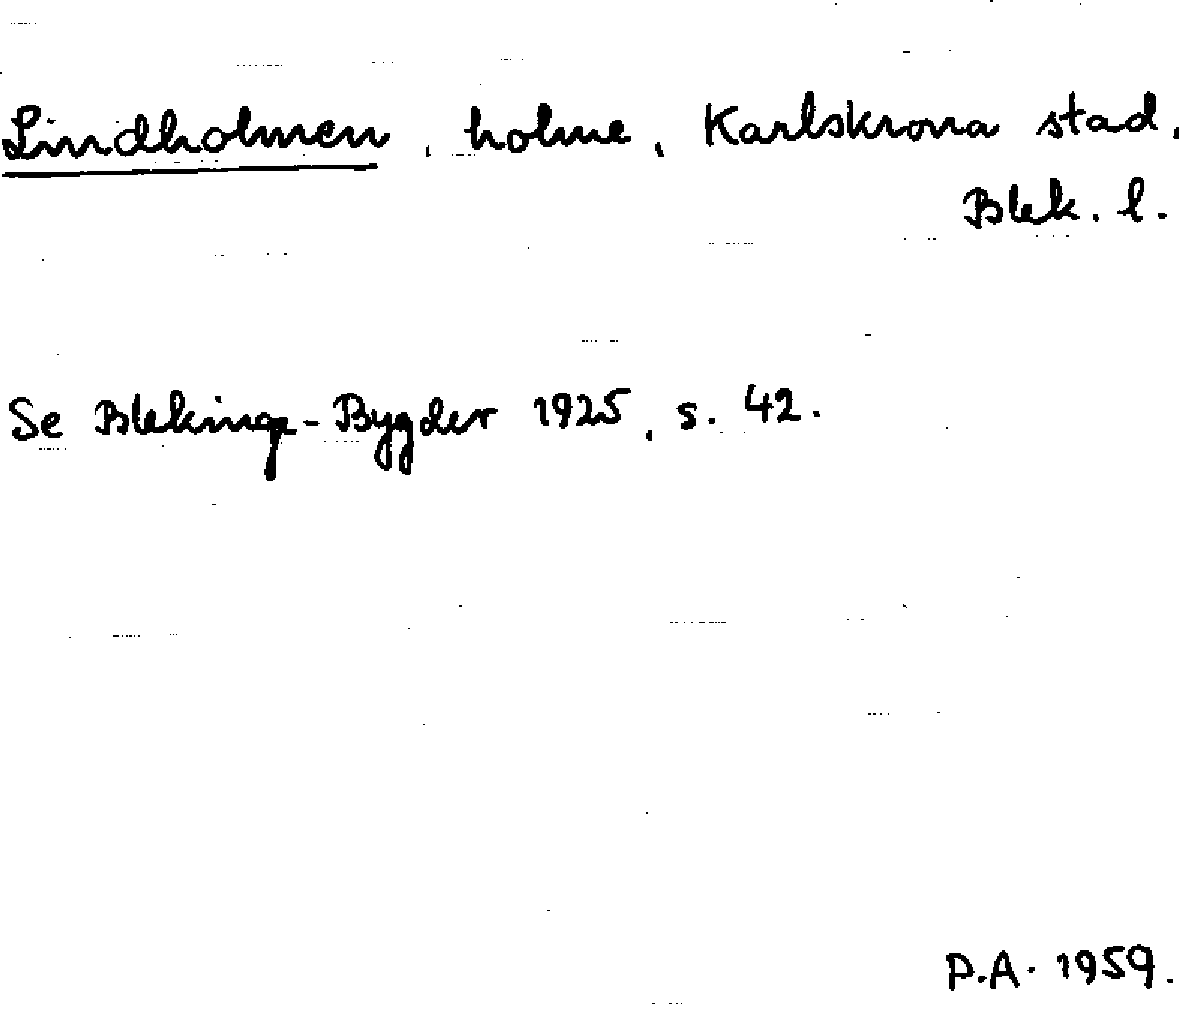 Lindholmen, holme, Karlskrona stad,
Blek. l.
Se Blekinge-Bygder 1925, s. 42.
P.A. 1959.